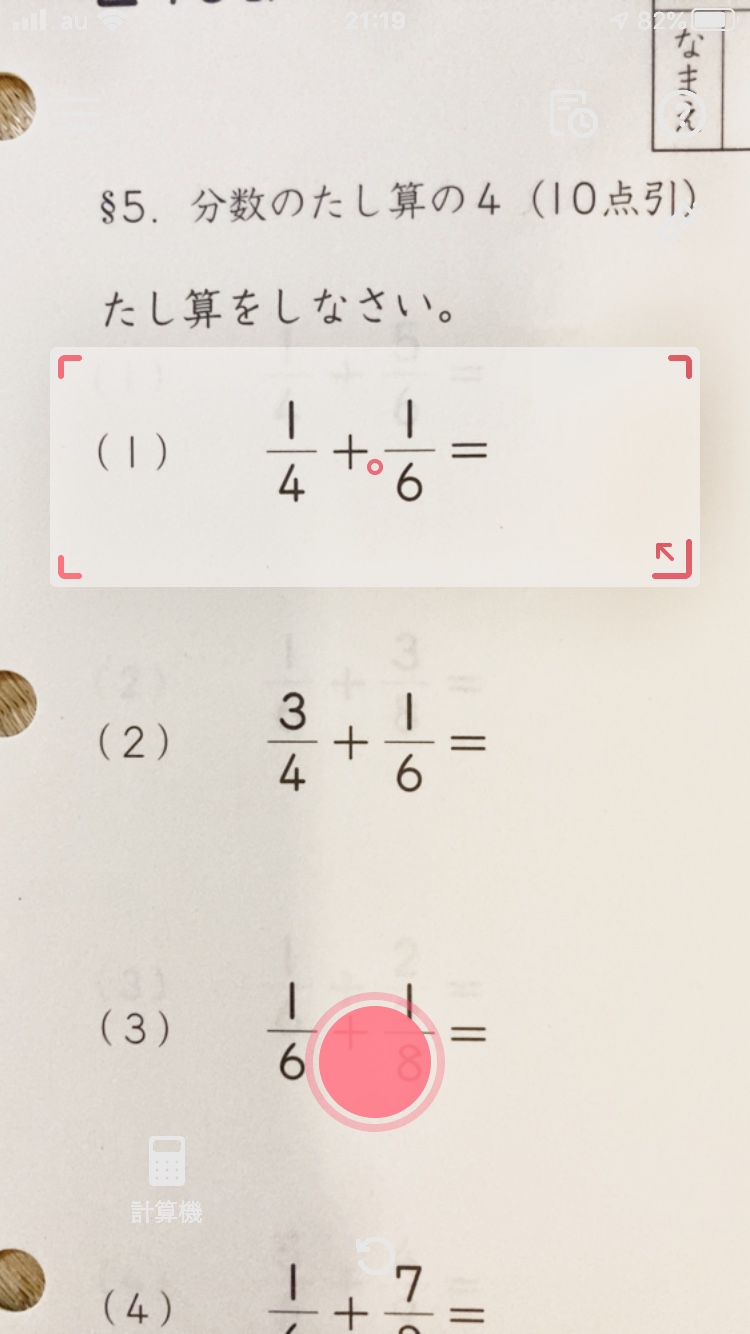 au 21:19 82%
なまえ
§5. 分数のたし算の4 (10点引)
たし算をしなさい。
(1) 1/4 + 1/6 =
(2) 3/4 + 1/6 =
(3) 1/6 + 1/8 =
計算機
(4) 1/ + 7/ =